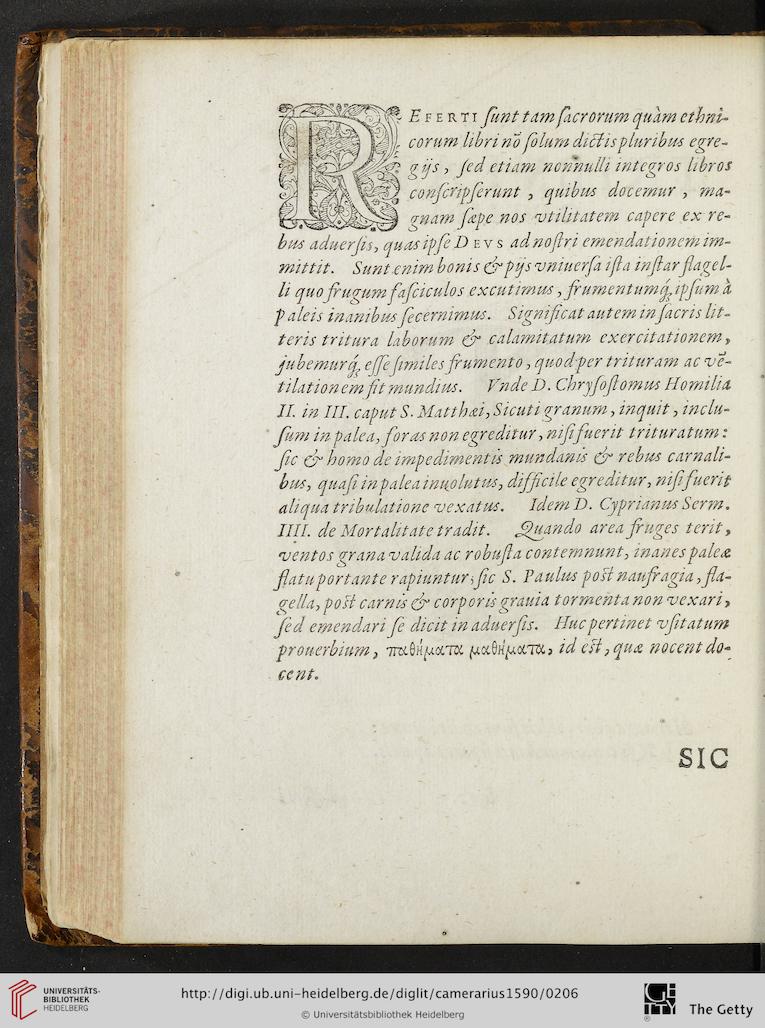 REFERTI ſunt tam ſacrorum quàm ethni-
corum libri nõ ſolum dictis pluribus egre-
gijs, ſed etiam nonnulli integros libros
conſcripſerunt, quibus docemur, ma-
gnam ſæpe nos vtilitatem capere ex re-
bus aduerſis, quas ipſe DEVS ad noſtri emendationem im-
mittit. Sunt enim bonis & pijs vniuerſa iſta inſtar flagel-
li quo frugum faſciculos excutimus, frumentumq́; ipſum à
paleis inanibus ſecernimus. Significat autem in ſacris lit-
teris tritura laborum & calamitatum exercitationem,
jubemurq́; eſſe ſimiles frumento, quod per trituram ac vẽ-
tilationem fit mundius. Vnde D. Chryſoſtomus Homilia
II. in III. caput S. Matthæi, Sicuti granum, inquit, inclu-
ſum in palea, foras non egreditur, niſi fuerit trituratum:
ſic & homo de impedimentis mundanis & rebus carnali-
bus, quaſi in palea inuolutus, difficile egreditur, niſi fuerit
aliqua tribulatione vexatus. Idem D. Cyprianus Serm.
IIII. de Mortalitate tradit. Quando area fruges terit,
ventos grana valida ac robuſta contemnunt, inanes paleæ
flatu portante rapiuntur; ſic S. Paulus poſt naufragia, fla-
gella, poſt carnis & corporis grauia tormenta non vexari,
ſed emendari ſe dicit in aduerſis. Huc pertinet vſitatum
prouerbium, παθήματα μαθήματα, id eſt, quæ nocent do-
cent.
SIC
UNIVERSITÄTS-
BIBLIOTHEK
HEIDELBERG
http://digi.ub.uni-heidelberg.de/diglit/camerarius1590/0206
© Universitätsbibliothek Heidelberg
GETTY
The Getty